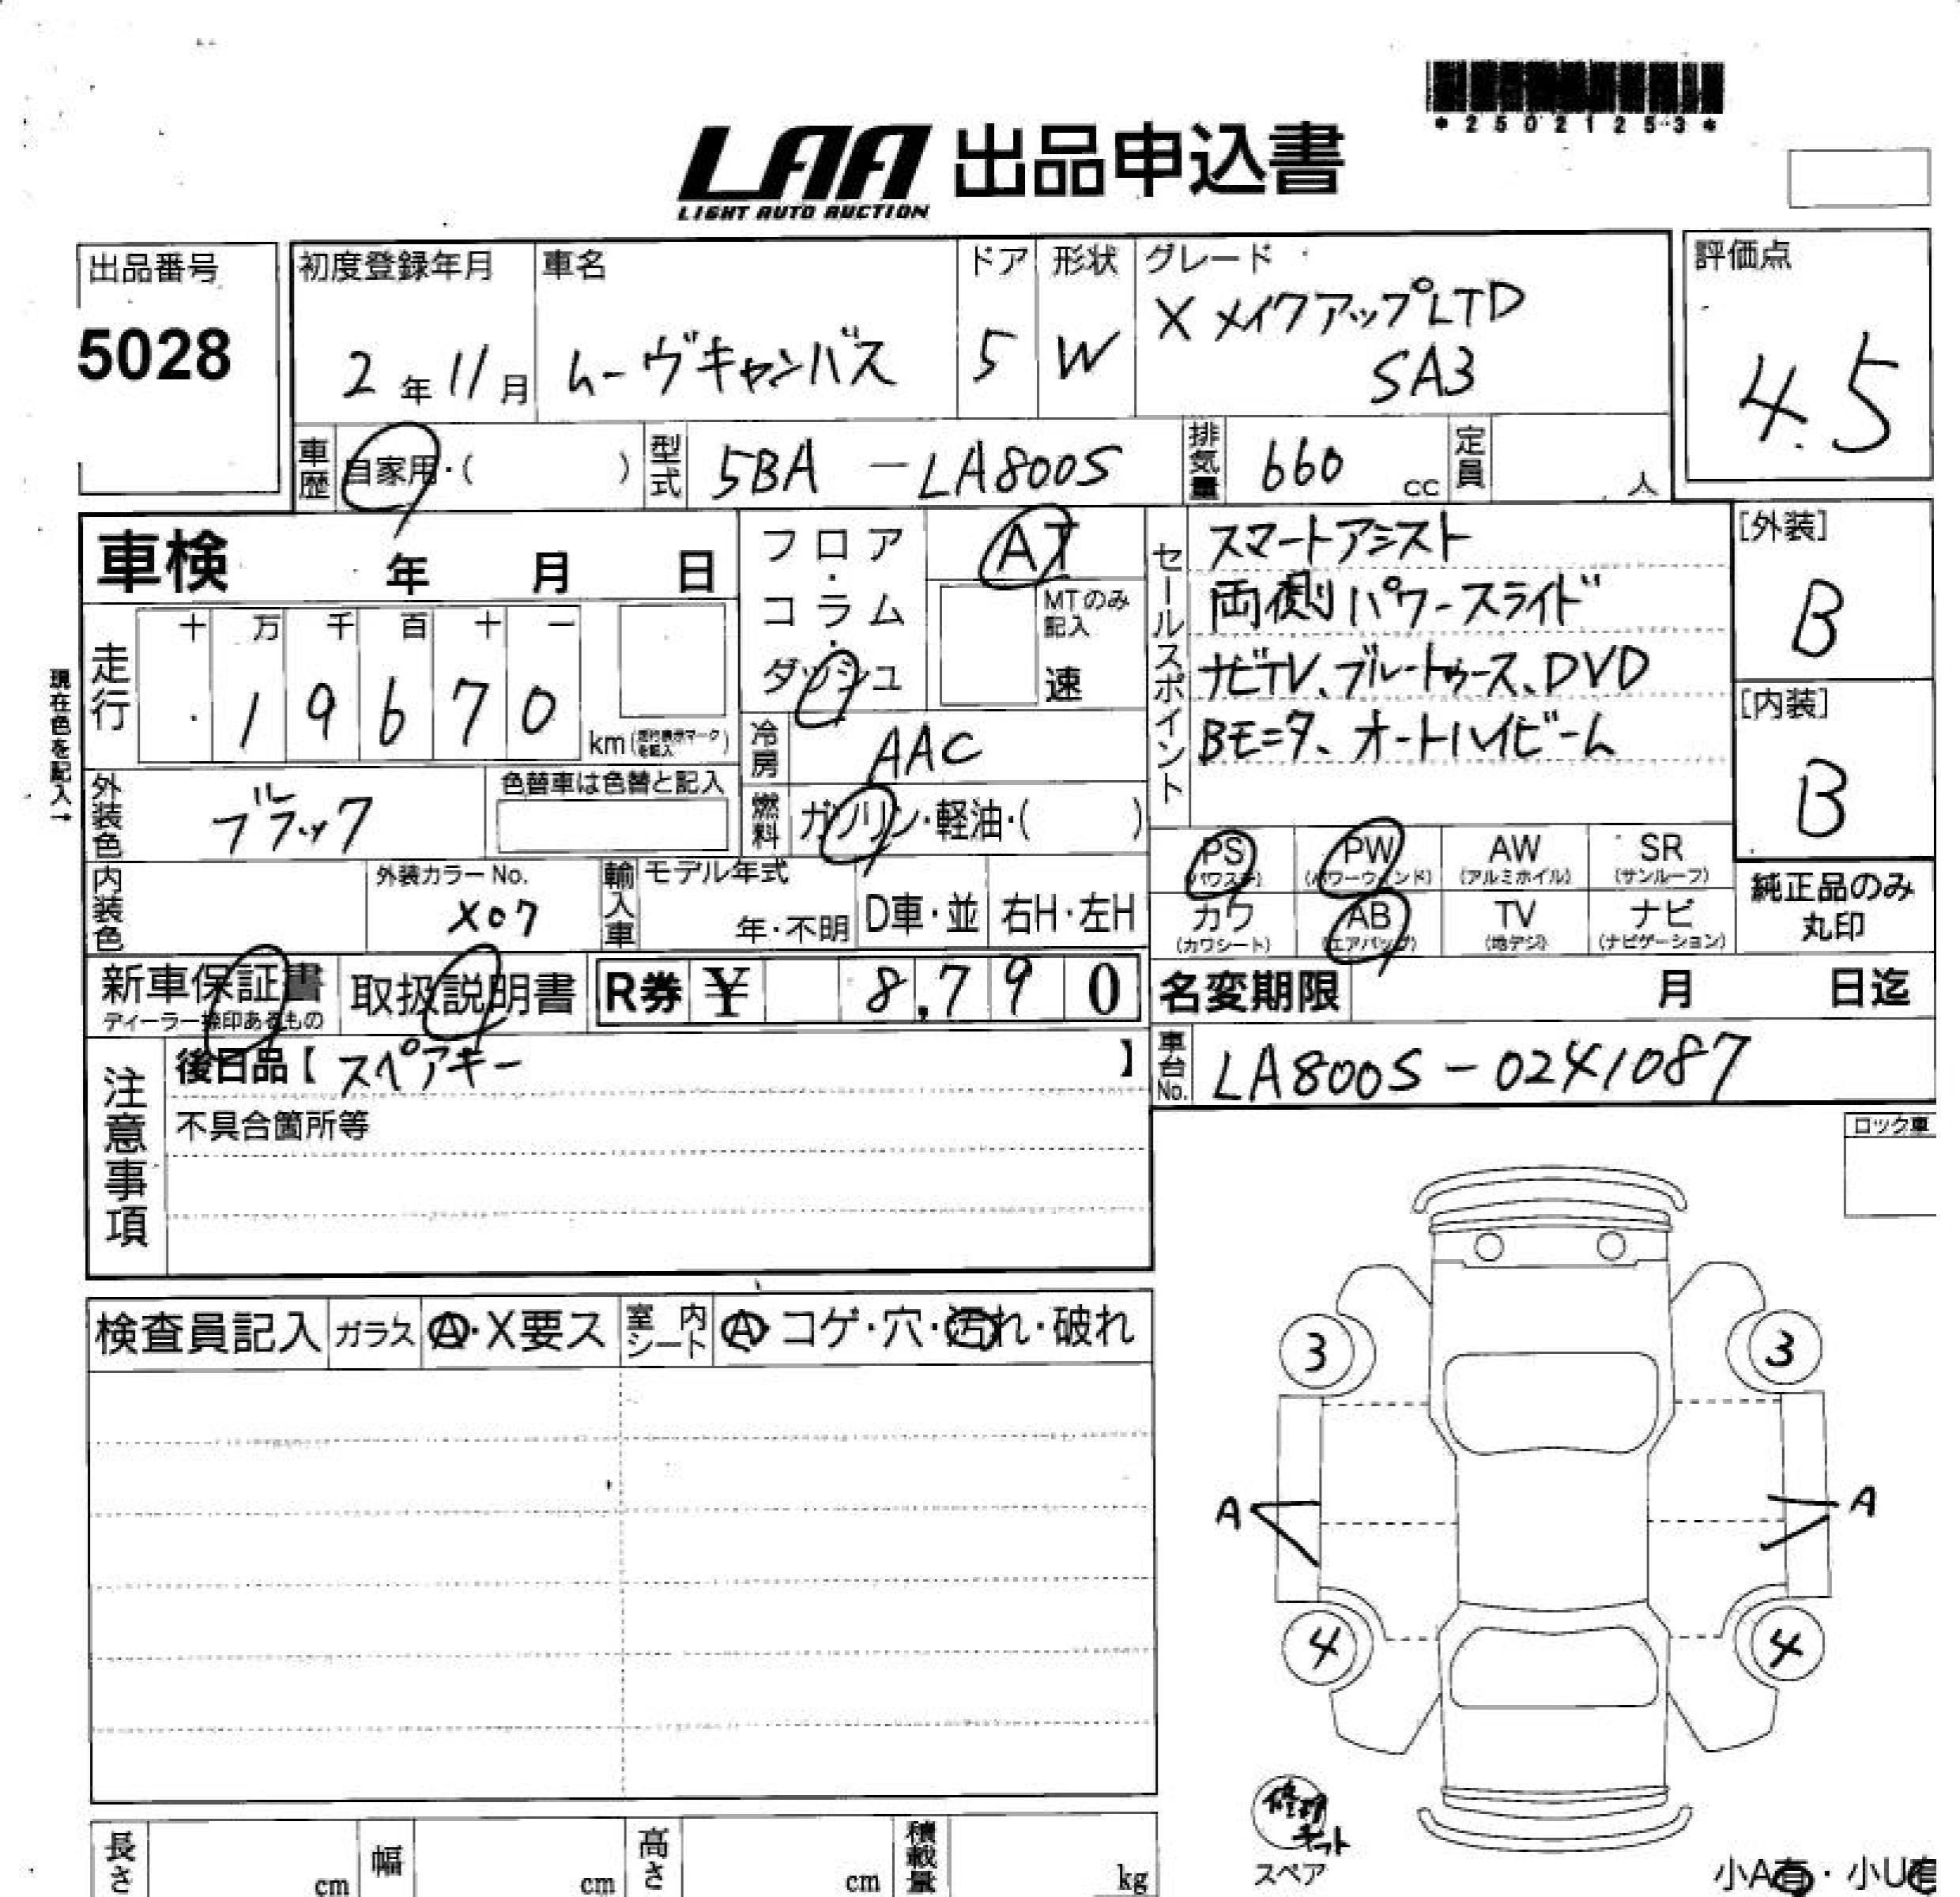 *25021253*
LAA 出品申込書
LIGHT AUTO AUCTION
出品番号
5028
初度登録年月
2年11月
車名
ムーヴキャンバス
ドア
5
形状
W
グレード
X メイクアップLTD
SA3
評価点
4.5
車歴
自家用・( )
型式
5BA - LA800S
排気量
660 cc
定員
人
車検 年 月 日
フロア・コラム・ダッシュ
AT
MTのみ記入
速
セールスポイント
スマートアシスト
両側パワースライド
ナビTV、ブルートゥース、DVD
BEニタ、オートハイビーム
[外装]
B
[内装]
B
現在色を記入→
走行
十 万 千 百 十 一
19670
km(走行表示マークを記入)
冷房
AAC
外装色
ブラック
色替車は色替と記入
燃料
ガソリン・軽油・( )
PS (パワステ)
PW (パワーウィンド)
AW (アルミホイル)
SR (サンルーフ)
カワ (カワシート)
AB (エアバッグ)
TV (地デジ)
ナビ (ナビゲーション)
純正品のみ
丸印
内装色
外装カラー No.
X07
輸入車
モデル年式
年・不明
D車・並
右H・左H
新車保証書
ディーラー捺印あるもの
取扱説明書
R券 ¥ 8,790
名変期限 月 日迄
注意事項
後日品【スペアキー 】
不具合箇所等
車台No.
LA800S-0241087
ロック車
検査員記入
ガラス
A・X要ス
室内シート
A・コゲ・穴・汚れ・破れ
3
3
A
A
4
4
修理キット
スペア
小A有・小U有
長さ cm
幅 cm
高さ cm
積載量 kg